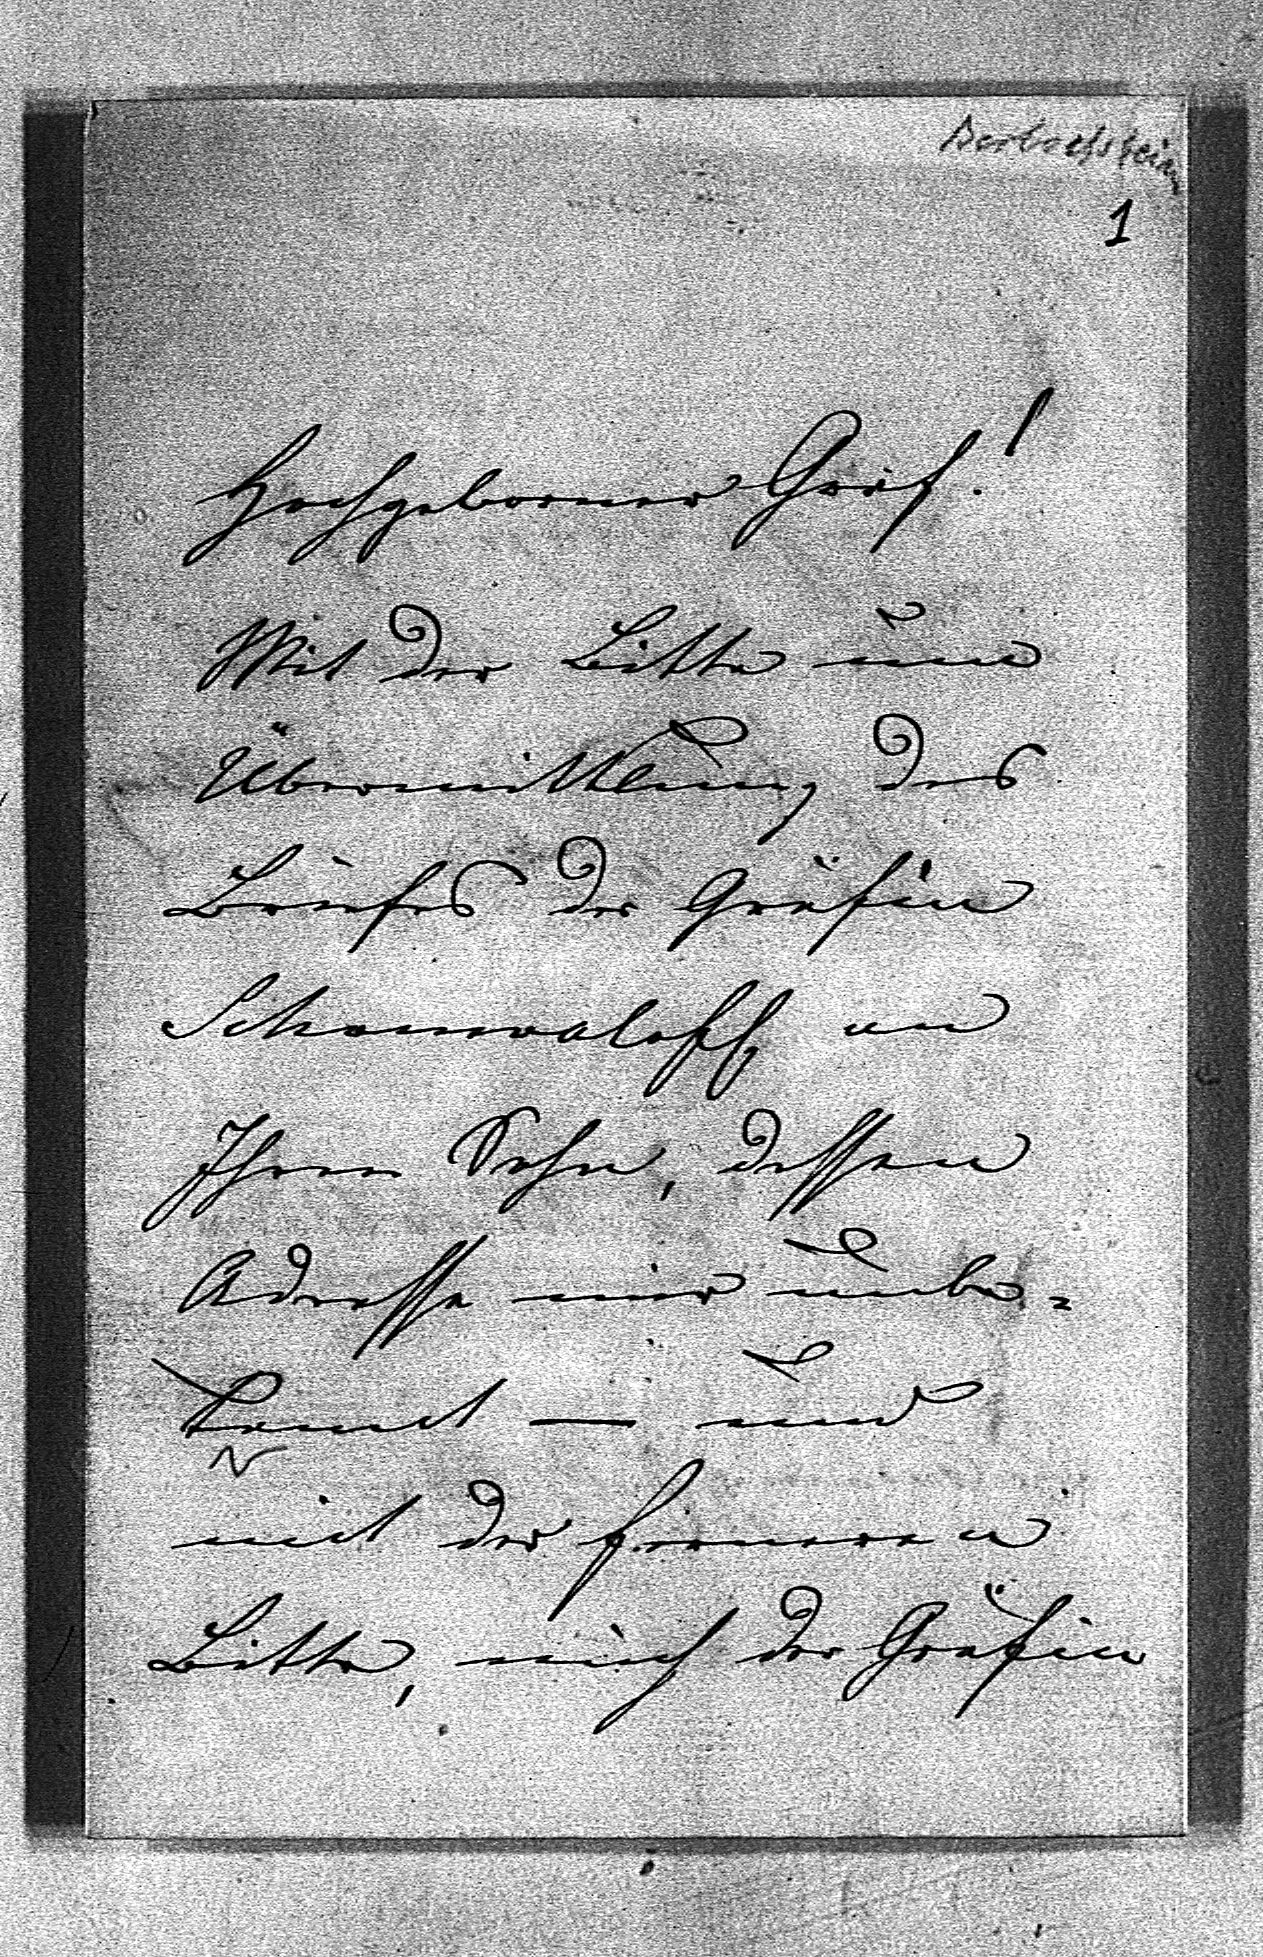 1
Hochgeborner Graf!
Mit der Bitte um
Übermittlung des
Briefes der Gräfin
Schouwaloff an
Ihren Sohn, dessen
Adresse mir unbe-
kannt — und
mit der ferneren
Bitte, mich der Gräfin